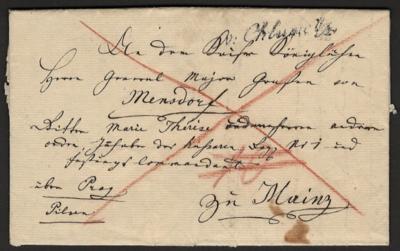 v: Chlumetz
An den Kaiser Königlichen
Herrn General Major Grafen von
Mensdorf
Ritter Marie Therese anderer
ordn, Inhaber des Regg Nr 1 und
Festungs Commandant
über Prag
Pilsen
zu Mainz